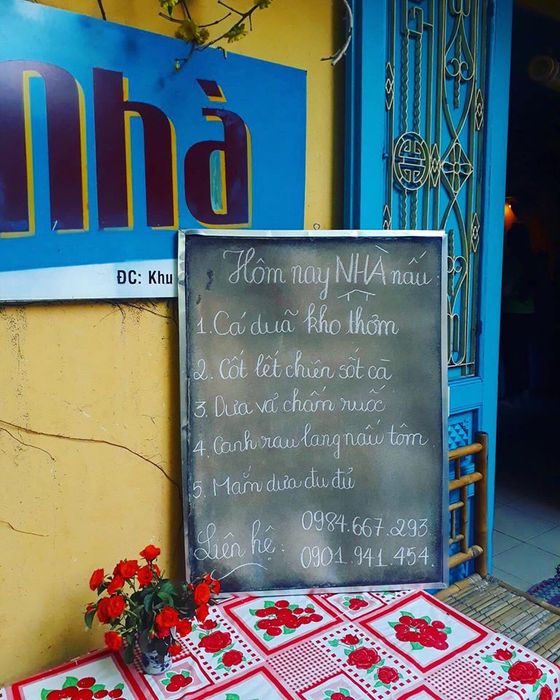 Nhà
ĐC: Khu
Hôm nay NHÀ nấu:
1. Cá đuã kho thơm
2. Cốt lết chiên sốt cà
3. Dưa vả chấm ruốc
4. Canh rau lang nấu tôm
5. Mắm dưa đu đủ
Liên hệ: 0984.667.293
0901.941.454.